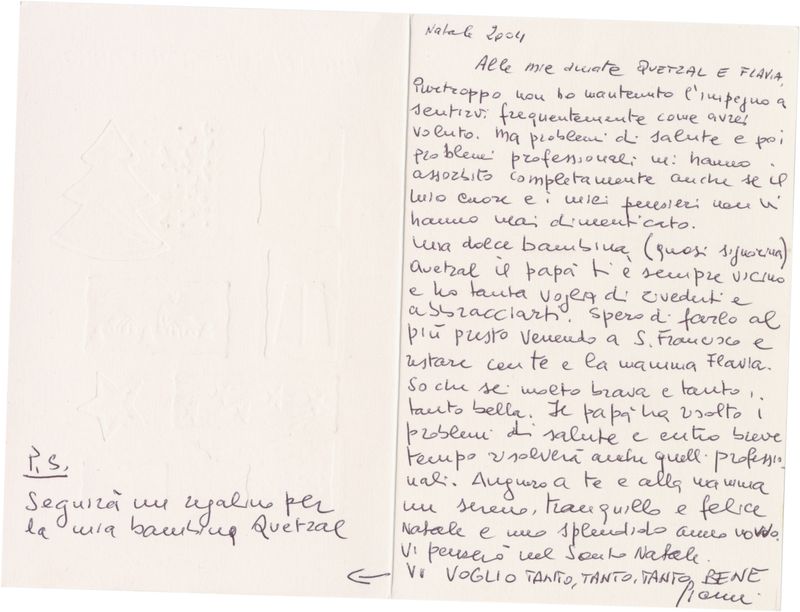 Natale 2004
Alle mie amate QUETZAL E FLAVIA,
Purtroppo non ho mantenuto l'impegno a
sentirvi frequentemente come avrei
voluto. Ma problemi di salute e poi
problemi professionali mi hanno
assorbito completamente anche se il
mio cuore e i miei pensieri non vi
hanno mai dimenticato.
Mia dolce bambina (quasi signorina)
Quetzal il papà ti è sempre vicino
e ho tanta voglia di rivederti e
abbracciarti. Spero di farlo al
più presto venendo a S. Francisco e
restare con te e la mamma Flavia.
So che sei molto brava e tanto,
tanto bella. Il papà ha risolto i
problemi di salute e entro breve
tempo risolverà anche quelli professio-
nali. Auguro a te e alla mamma
un sereno, tranquillo e felice
Natale e uno splendido anno nuovo.
Vi penserò nel Santo Natale.
VI VOGLIO TANTO, TANTO, TANTO BENE
P.S.
Seguirà un regalino per
la mia bambina Quetzal